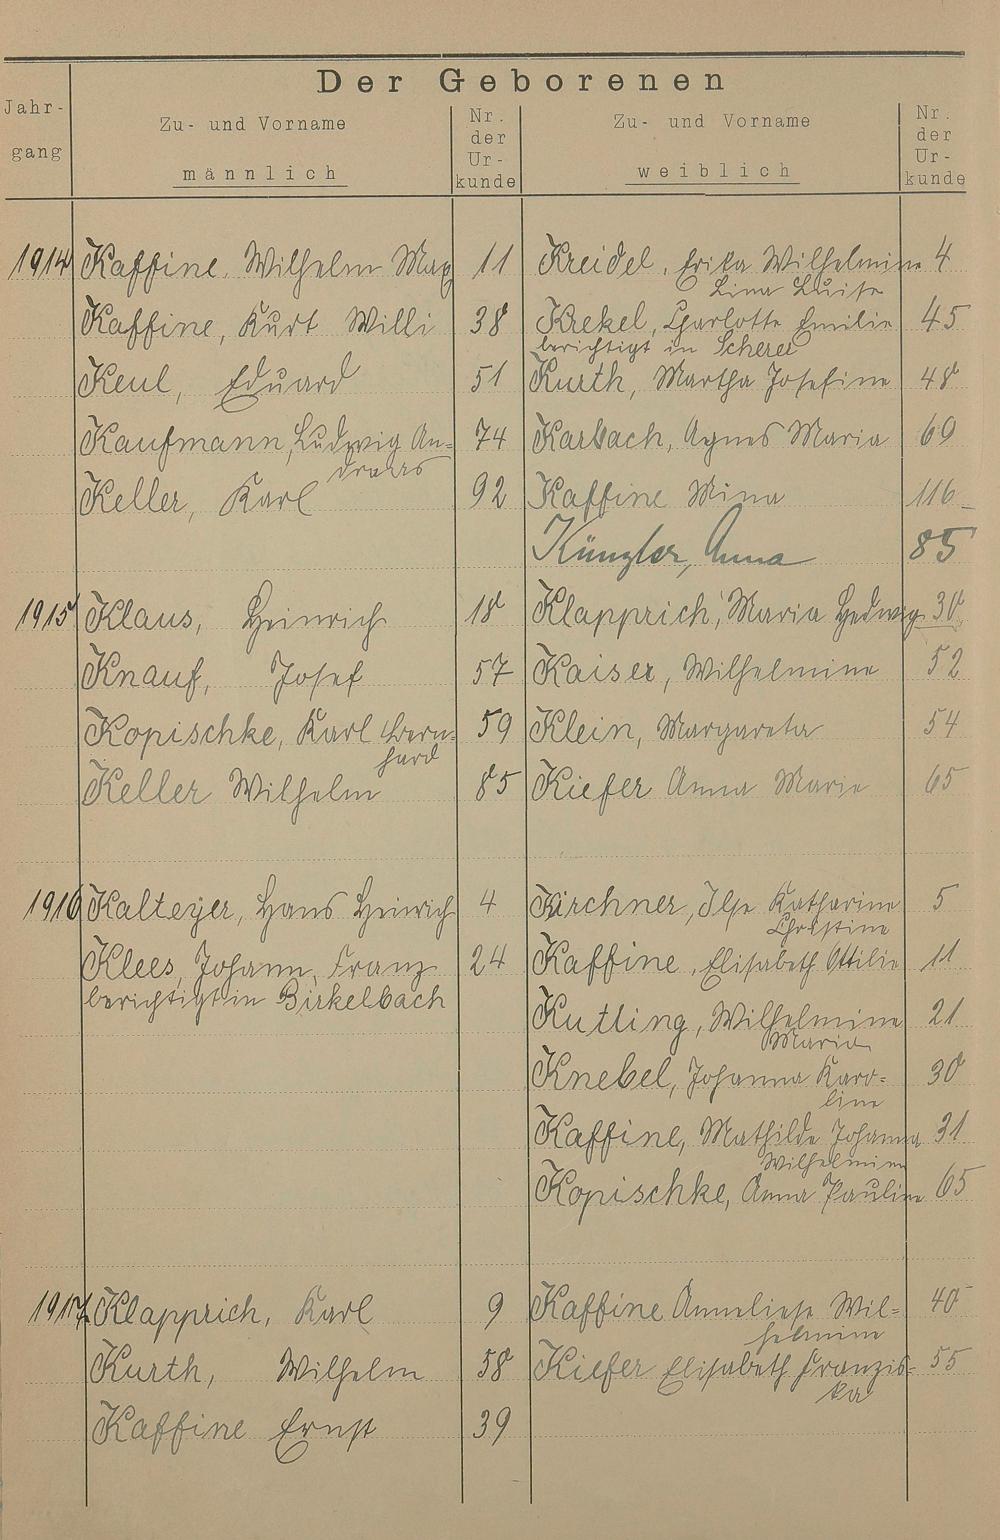 Der Geborenen
Jahr-
gang
Zu- und Vorname
männlich
Nr.
der
Ur-
kunde
Zu- und Vorname
weiblich
Nr.
der
Ur-
kunde
1914 Kaffine, Wilhelm Max 11 Kreidel, Erika Wilhelmine 4
Lina Luise
Kaffine, Kurt Willi 38 Krekel, Charlotte Emilie 45
berichtigt in Scherer
Keul, Eduard 51 Kurth, Martha Josefine 48
Kaufmann, Ludwig An- 74 Karbach, Agnes Maria 69
dreas
Keller, Karl 92 Kaffine Mina 116
Künzler, Anna 85
1915 Klaus, Heinrich 18 Klapprich, Maria Hedwig 30
Knauf, Josef 57 Kaiser, Wilhelmine 52
Kopischke, Karl Bern- 59 Klein, Margareta 54
hard
Keller Wilhelm 85 Kiefer Anna Marie 65
1916 Kalteyer, Hans Heinrich 4 Kirchner, Ilse Katharine 5
Christine
Klees, Johann, Franz 24 Kaffine, Elisabeth Ottilie 11
berichtigt in Birkelbach
Kutling, Wilhelmine 21
Maria
Knebel, Johanna Karo- 30
line
Kaffine, Mathilde Johanna 31
Wilhelmine
Kopischke, Anna Pauline 65
1917 Klapprich, Karl 9 Kaffine Anneliese Wil- 40
helmine
Kurth, Wilhelm 58 Kiefer Elisabeth Franzis- 55
ka
Kaffine Ernst 39